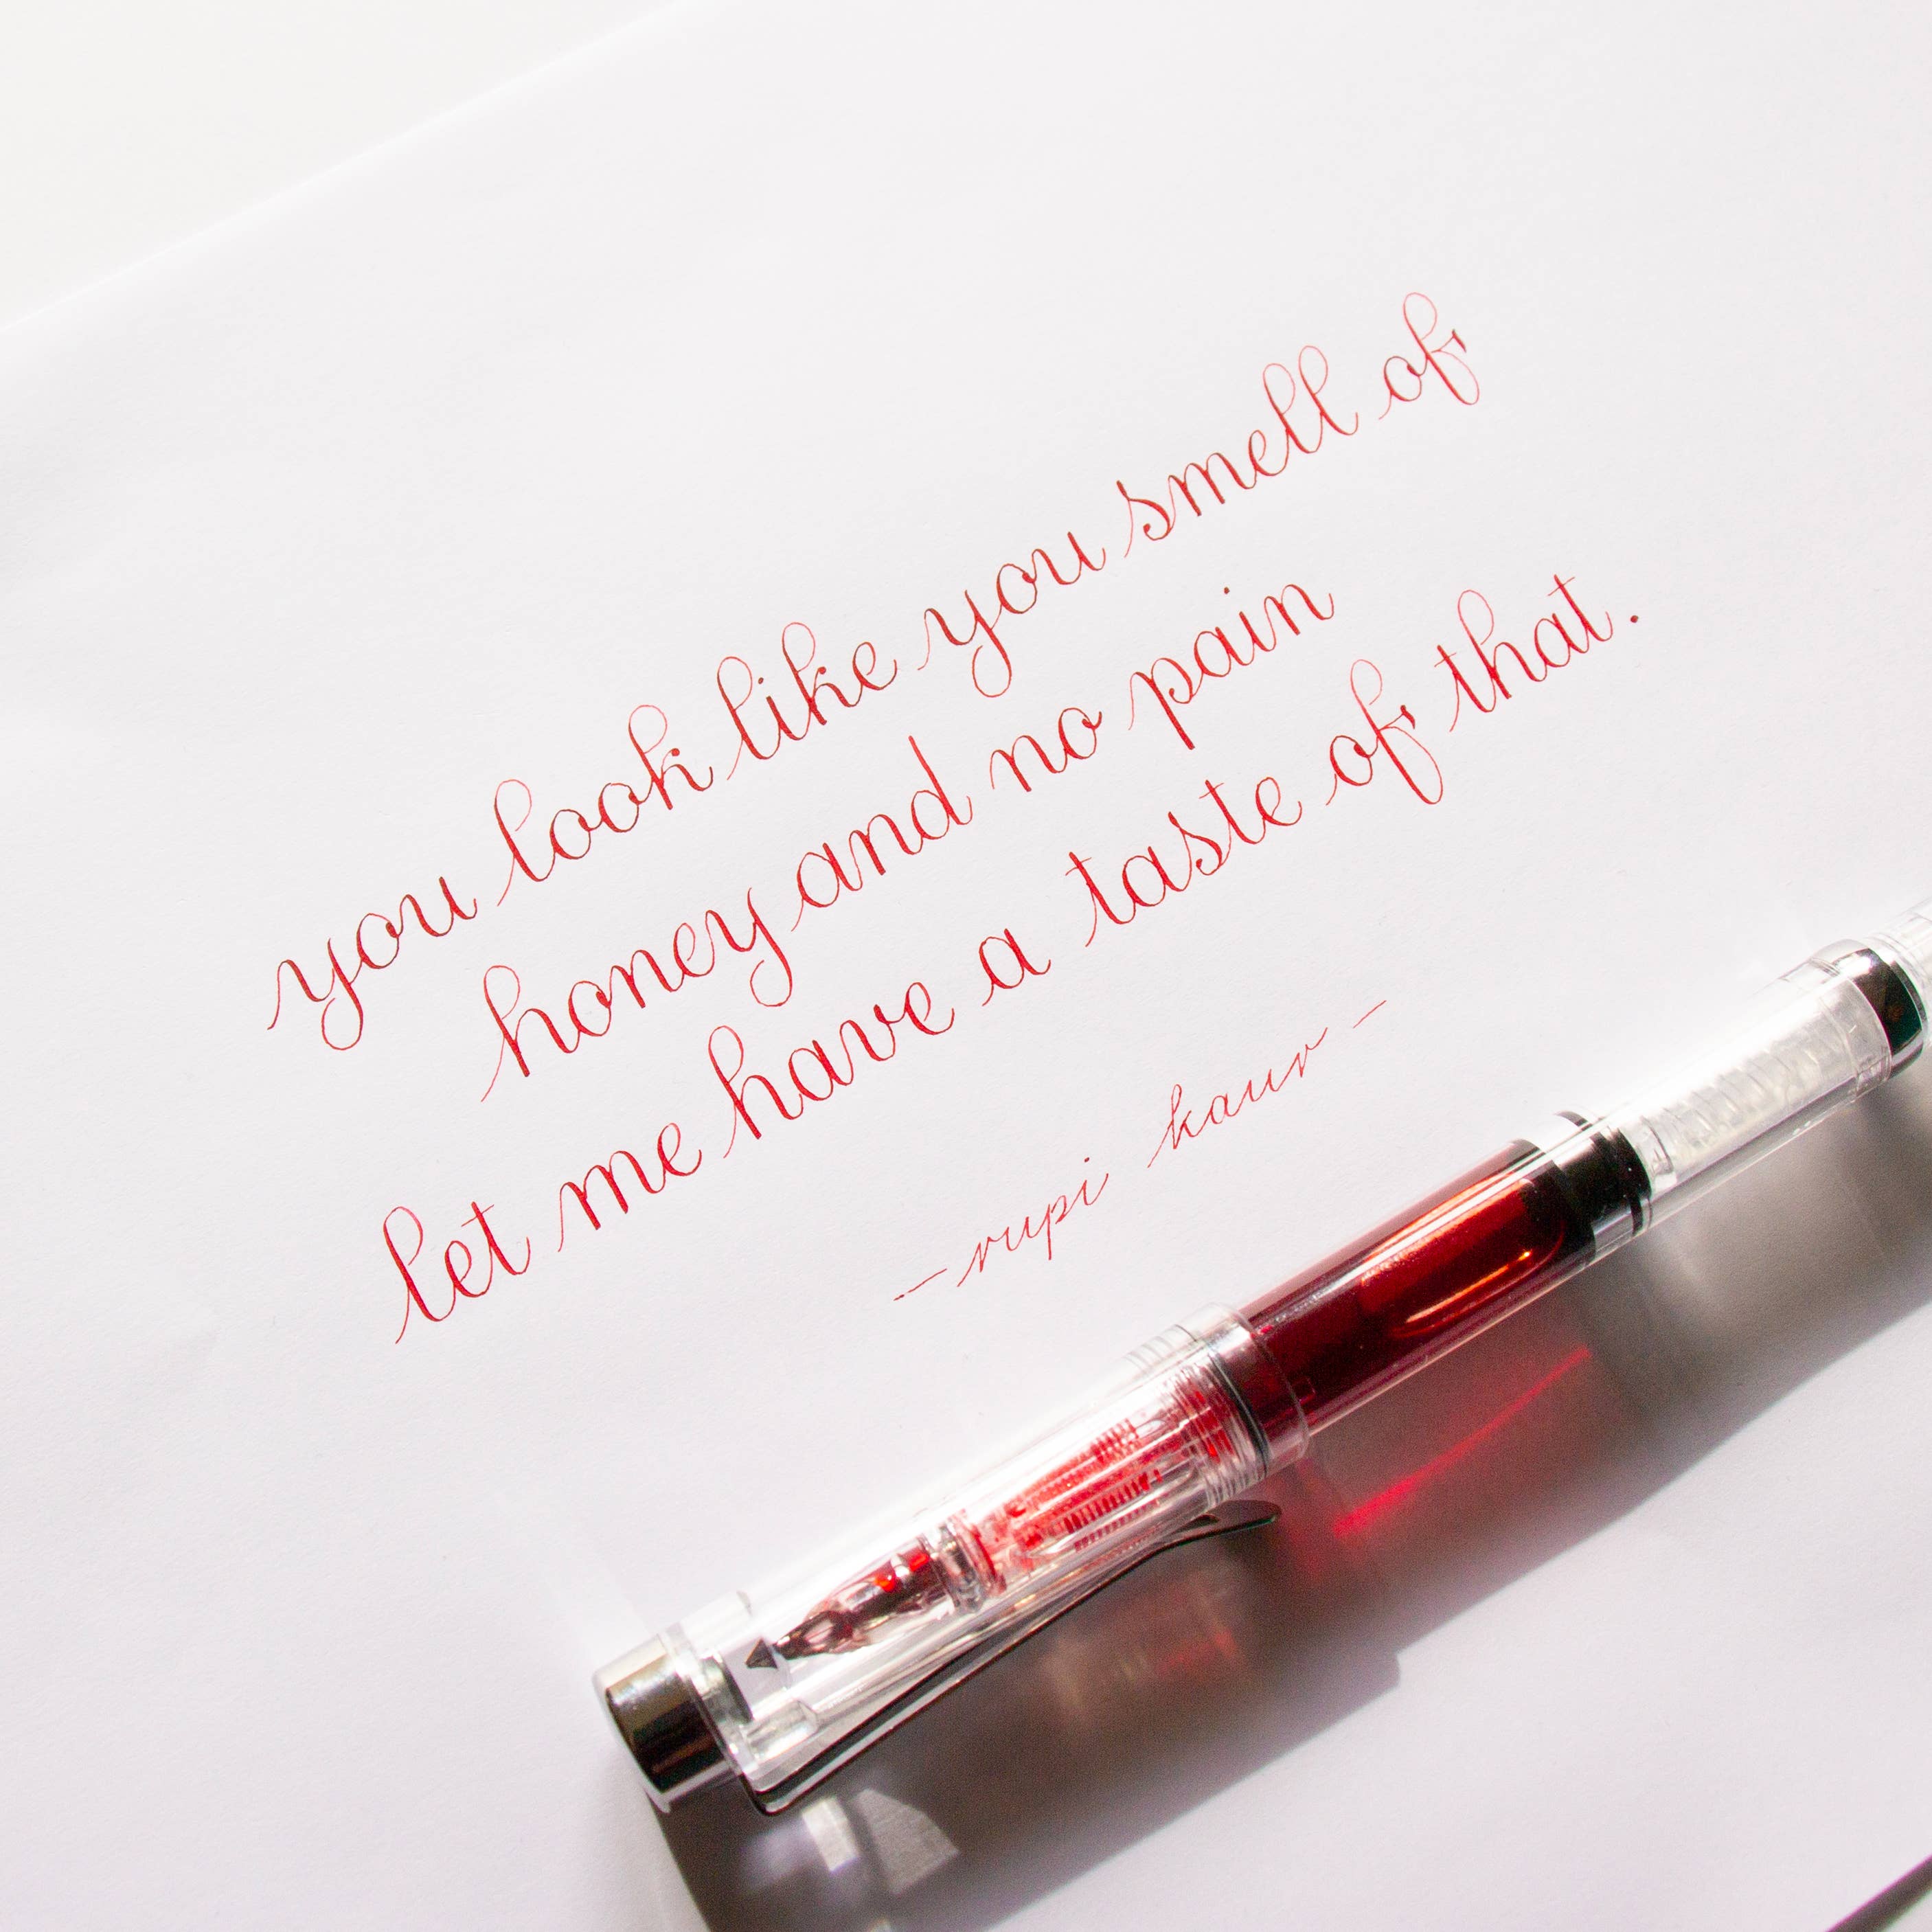 you look like you smell of
honey and no pain
let me have a taste of that.
— rupi kaur —